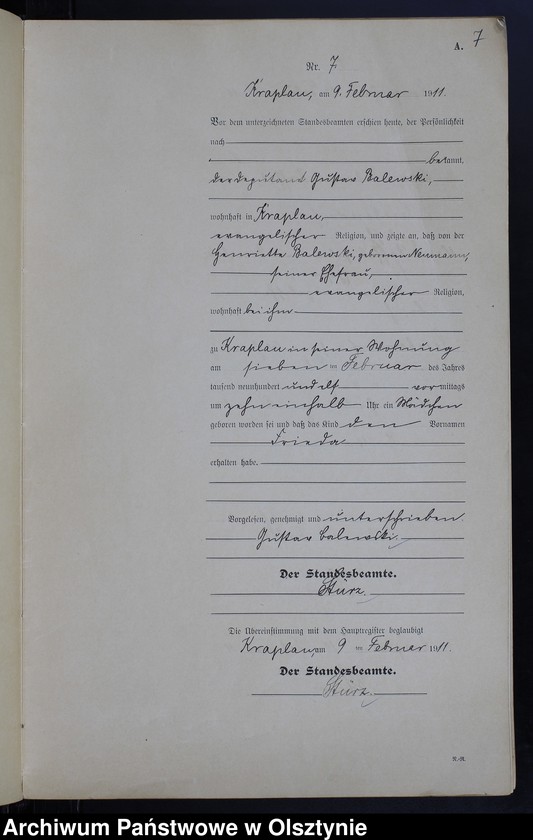 A. 7
Nr. 7
Kraplau, am 9. Februar 1911.
Vor dem unterzeichneten Standesbeamten erschien heute, der Persönlichkeit
nach
bekannt,
der Deputant Gustav Balewski,
wohnhaft in Kraplau,
evangelischer Religion, und zeigte an, daß von der
Henriette Balewski, geborenen Neumann,
seiner Ehefrau,
evangelischer Religion,
wohnhaft bei ihm
zu Kraplau in seiner Wohnung
am sieben ten Februar des Jahres
tausend neunhundert und elf vormittags
um zehn einhalb Uhr ein Mädchen
geboren worden sei und daß das Kind den Vornamen
Frieda
erhalten habe.
Vorgelesen, genehmigt und unterschrieben
Gustav Balewski.
Der Standesbeamte.
Stürz.
Die Übereinstimmung mit dem Hauptregister beglaubigt
Kraplau, am 9 ten Februar 1911.
Der Standesbeamte.
Stürz.
R.-R.
Archiwum Państwowe w Olsztynie